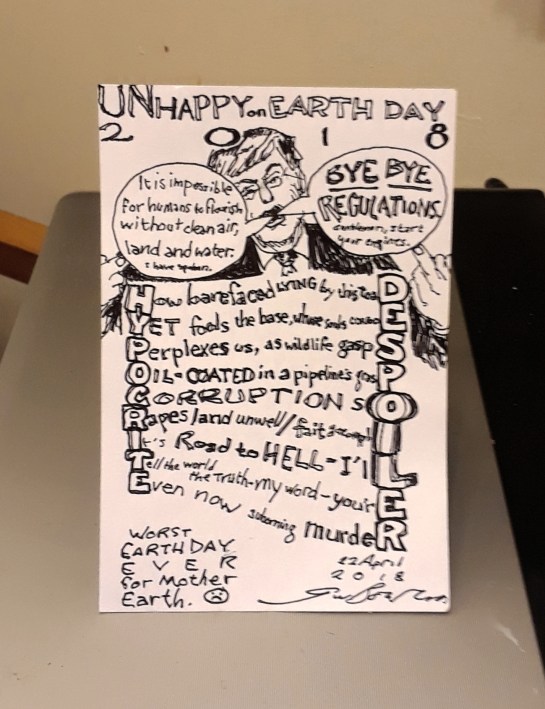 UNHAPPY on EARTH DAY
2 0 1 8
It is impossible
for humans to flourish
without clean air,
land and water.
I have spoken.
BYE BYE
REGULATIONS.
Gentlemen, start
your engines.
How barefaced LYING by this toa D
YET fools the base, whose souls E
Perplexes us, as wildlife gasp S
OIL-COATED in a pipeline's P
CORRUPTIONS O
Rapes land unwell / fait I
It's Road to HELL-I'll L
Tell the world the Truth-my word-your E
Even now suborning murde R
WORST
EARTH DAY
EVER
for Mother
Earth.
22 April
2018